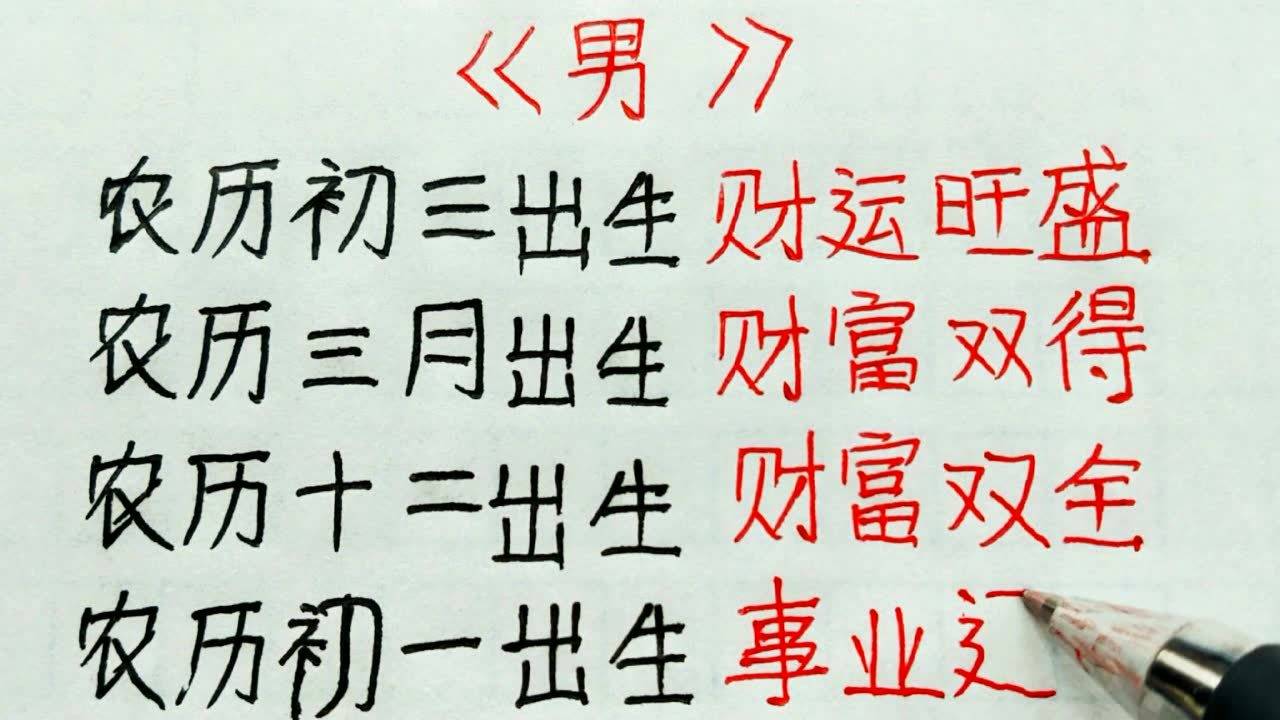 《男》
农历初三出生 财运旺盛
农历三月出生 财富双得
农历十二出生 财富双全
农历初一出生 事业